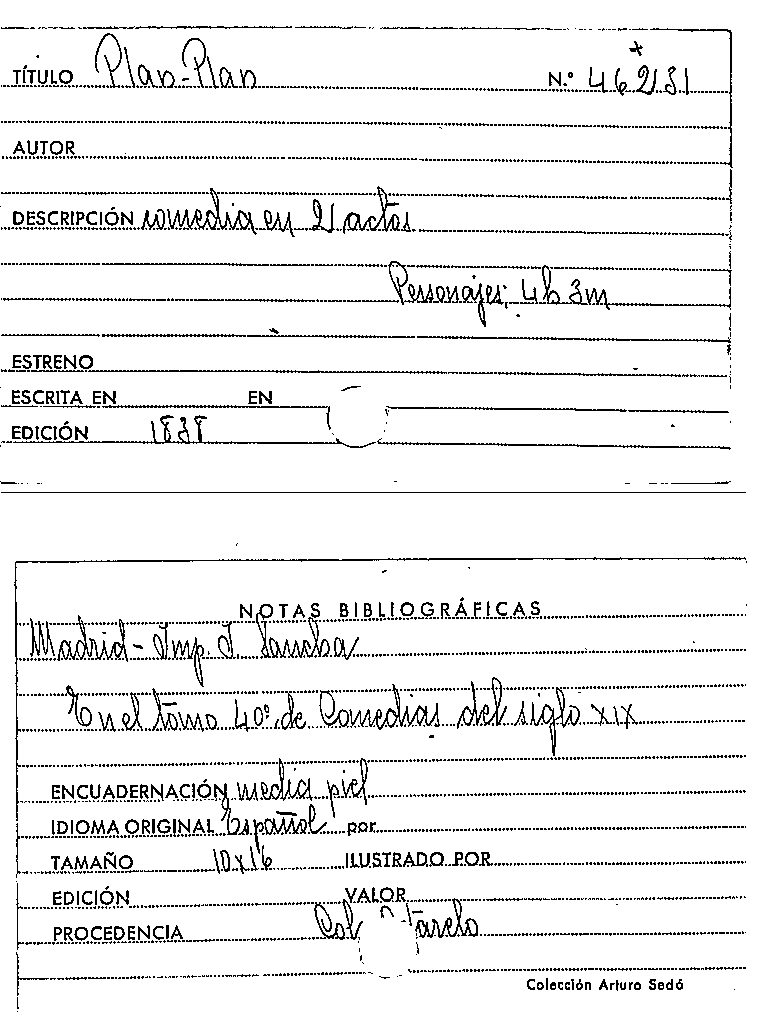 TÍTULO Plan-Plan N.º 462131
AUTOR
DESCRIPCIÓN comedia en 2 actos
Personajes; 4h 3m
ESTRENO
ESCRITA EN EN
EDICIÓN 1838
NOTAS BIBLIOGRÁFICAS
Madrid - Imp. I. Sancha
En el tomo 40º de Comedias del siglo XIX
ENCUADERNACIÓN media piel
IDIOMA ORIGINAL Español por
TAMAÑO 10x16 ILUSTRADO POR
EDICIÓN VALOR
PROCEDENCIA Col
Colección Arturo Sedó